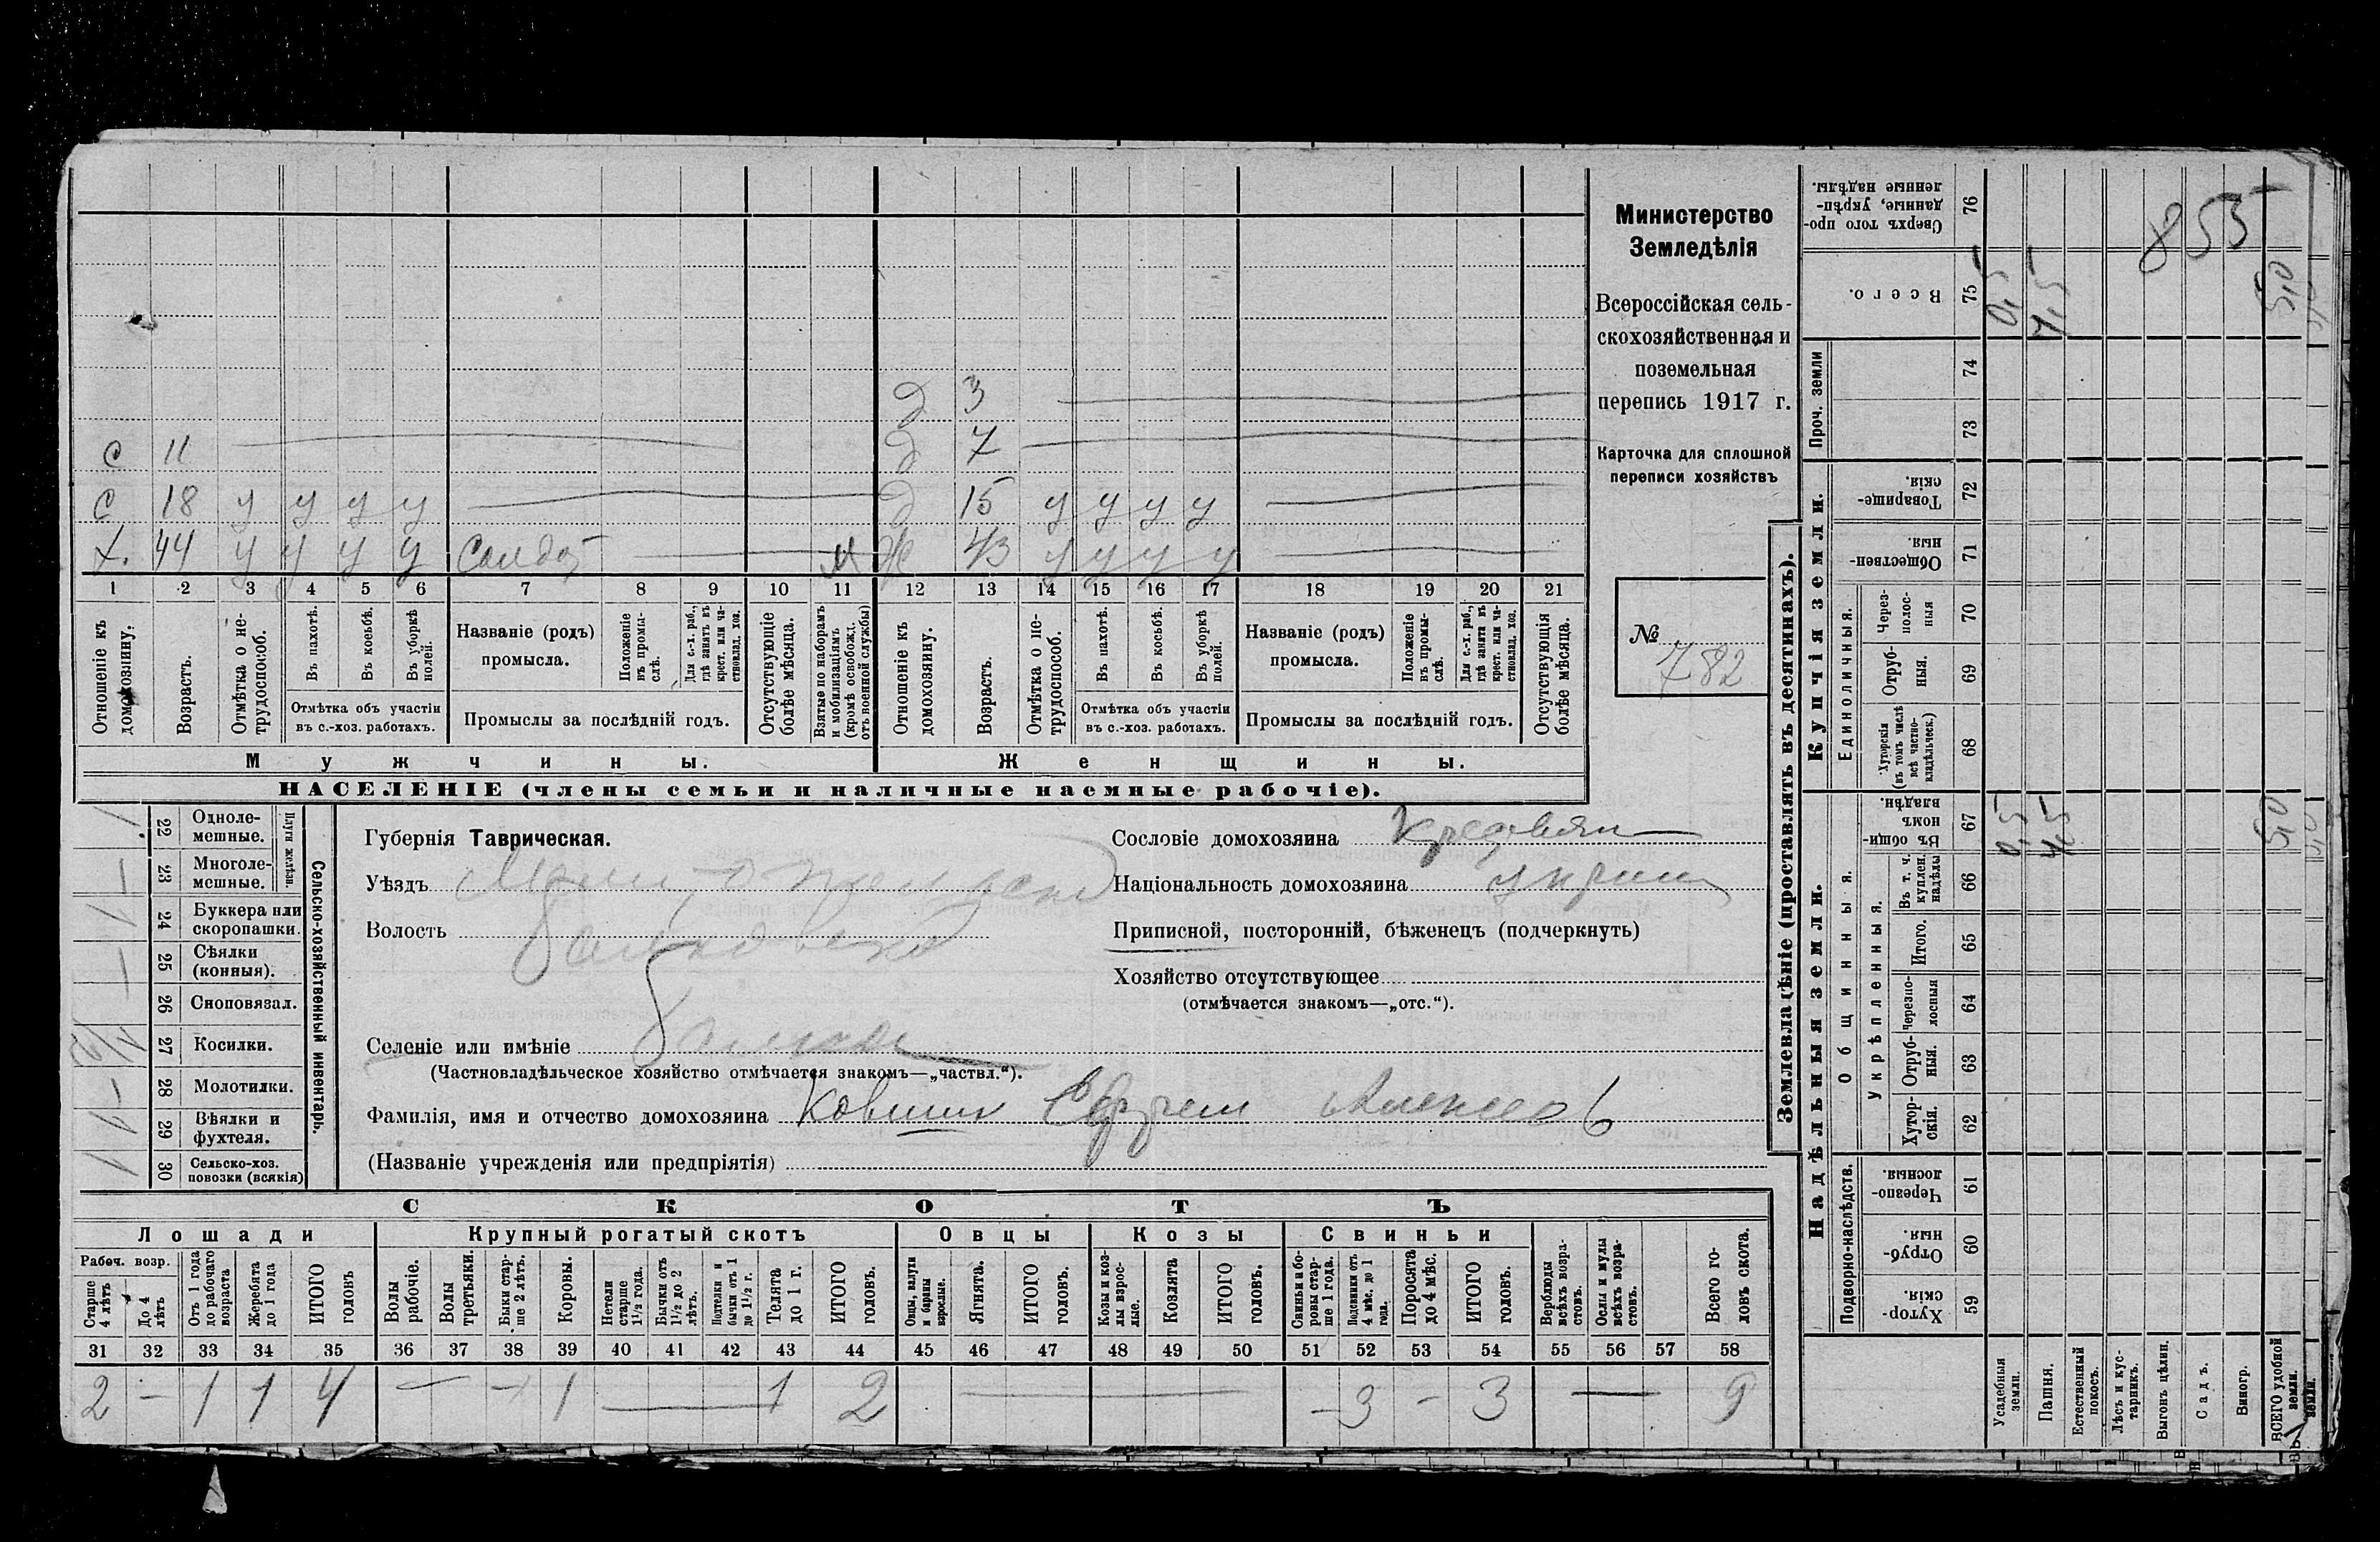 Министерство
Земледѣлія
Всероссійская сель-
скохозяйственная и
поземельная
перепись 1917 г.
Карточка для сплошной
переписи хозяйствъ
№
782
д 3
с 11 д 7
с 18 у у у у д 15 у у у у
х. 44 у у у у Солдат м ж 43 у у у у
1 2 3 4 5 6 7 8 9 10 11 12 13 14 15 16 17 18 19 20 21
Отношеніе къ домохозяину.
Возрастъ.
Отмѣтка о не-трудоспособ.
Въ пахотѣ.
Въ косьбѣ.
Въ уборкѣ полей.
Отмѣтка объ участіи
въ с.-хоз. работахъ.
Названіе (родъ)
промысла.
Положеніе въ промы-слѣ.
Для с.-х. раб., гдѣ занятъ въ крест. или ча-стновлад. хоз.
Промыслы за послѣдній годъ.
Отсутствующіе болѣе мѣсяца.
Взятые по наборамъ и мобилизаціямъ (кромѣ освобожд. отъ военной службы)
Отношеніе къ домохозяину.
Возрастъ.
Отмѣтка о не-трудоспособ.
Въ пахотѣ.
Въ косьбѣ.
Въ уборкѣ полей.
Отмѣтка объ участіи
въ с.-хоз. работахъ.
Названіе (родъ)
промысла.
Положеніе въ промы-слѣ.
Для с.-х. раб., гдѣ занята въ крест. или ча-стновлад. хоз.
Промыслы за послѣдній годъ.
Отсутствующія болѣе мѣсяца.
Мужчины. Женщины.
НАСЕЛЕНІЕ (члены семьи и наличные наемные рабочіе).
Сельско-хозяйственный инвентарь.
Плуги желѣзн.
22 Одноле-мешные. 1
23 Многоле-мешные. —
24 Буккера или скоропашки. 1
25 Сѣялки (конныя). —
26 Сноповязал.
27 Косилки.
28 Молотилки. —
29 Вѣялки и фухтеля. 1
30 Сельско-хоз. повозки (всякія) 1
Губернія Таврическая.
Уѣздъ Мелитопольск
Волость
Селеніе или имѣніе
(Частновладѣльческое хозяйство отмѣчается знакомъ—„частвл.“).
Фамилія, имя и отчество домохозяина Ковшик Ефрем Алексеев
(Названіе учрежденія или предпріятія)
Сословіе домохозяина Крестьян
Національность домохозяина украин
Приписной, посторонній, бѣженецъ (подчеркнуть)
Хозяйство отсутствующее
(отмѣчается знакомъ—„отс.“).
СКОТЪ
Лошади Крупный рогатый скотъ Овцы Козы Свиньи
Рабоч. возр.
Старше 4 лѣтъ
До 4 лѣтъ
Отъ 1 года до рабочаго возраста
Жеребята до 1 года
ИТОГО головъ
Волы рабочіе.
Волы третьяки.
Быки стар-ше 2 лѣтъ.
Коровы.
Нетели старше 1½ года.
Бычки отъ 1½ до 2 лѣтъ.
Подтелки и бычки отъ 1 до 1½ г.
Телята до 1 г.
ИТОГО головъ.
Овцы, валухи и бараны взрослые.
Ягнята.
ИТОГО головъ.
Козы и коз-лы взрос-лые.
Козлята
ИТОГО головъ.
Свиньи и бо-ровы стар-ше 1 года.
Подсвинки отъ 4 мѣс. до 1 года.
Поросята до 4 мѣс.
ИТОГО головъ.
Верблюды всѣхъ возра-стовъ.
Ослы и мулы всѣхъ возра-стовъ.
Всего го-ловъ скота.
31 32 33 34 35 36 37 38 39 40 41 42 43 44 45 46 47 48 49 50 51 52 53 54 55 56 57 58
2 — 1 1 4 — — 1 — 1 2 — — 3 — 3 — 9
Землевладѣніе (проставлять въ десятинахъ).
Купчія земли.
Надѣльныя земли.
Проч. земли
Единоличныя.
Общинныя.
Укрѣпленныя.
Подворно-наслѣдств.
Сверхъ того про-данные, укрѣп-ленные надѣлы. 76
Всего. 75 0,5 4,5 5,0
74
73
Товарище-скія. 72
Обществен-ныя. 71
Через-полос-ныя 70
Отруб-ныя. 69
Хуторскія (въ томъ числѣ всѣ частно-владѣльческ.) 68
Въ общи-номъ владѣн. 67 0,5 4,5 5,0
Въ т. ч. куплен. надѣлы 66
Итого. 65
черезпо-лосныя 64
Отруб-ныя. 63
Хутор-скія. 62
Черезпо-лосныя. 61
Отруб-ныя. 60
Хутор-скія. 59
Усадебныя земли.
Пашня.
Естественный покосъ.
Лѣсъ и кус-тарникъ.
Выгонъ цѣлин.
Садъ.
Виногр.
ВСЕГО удобной земли.
855